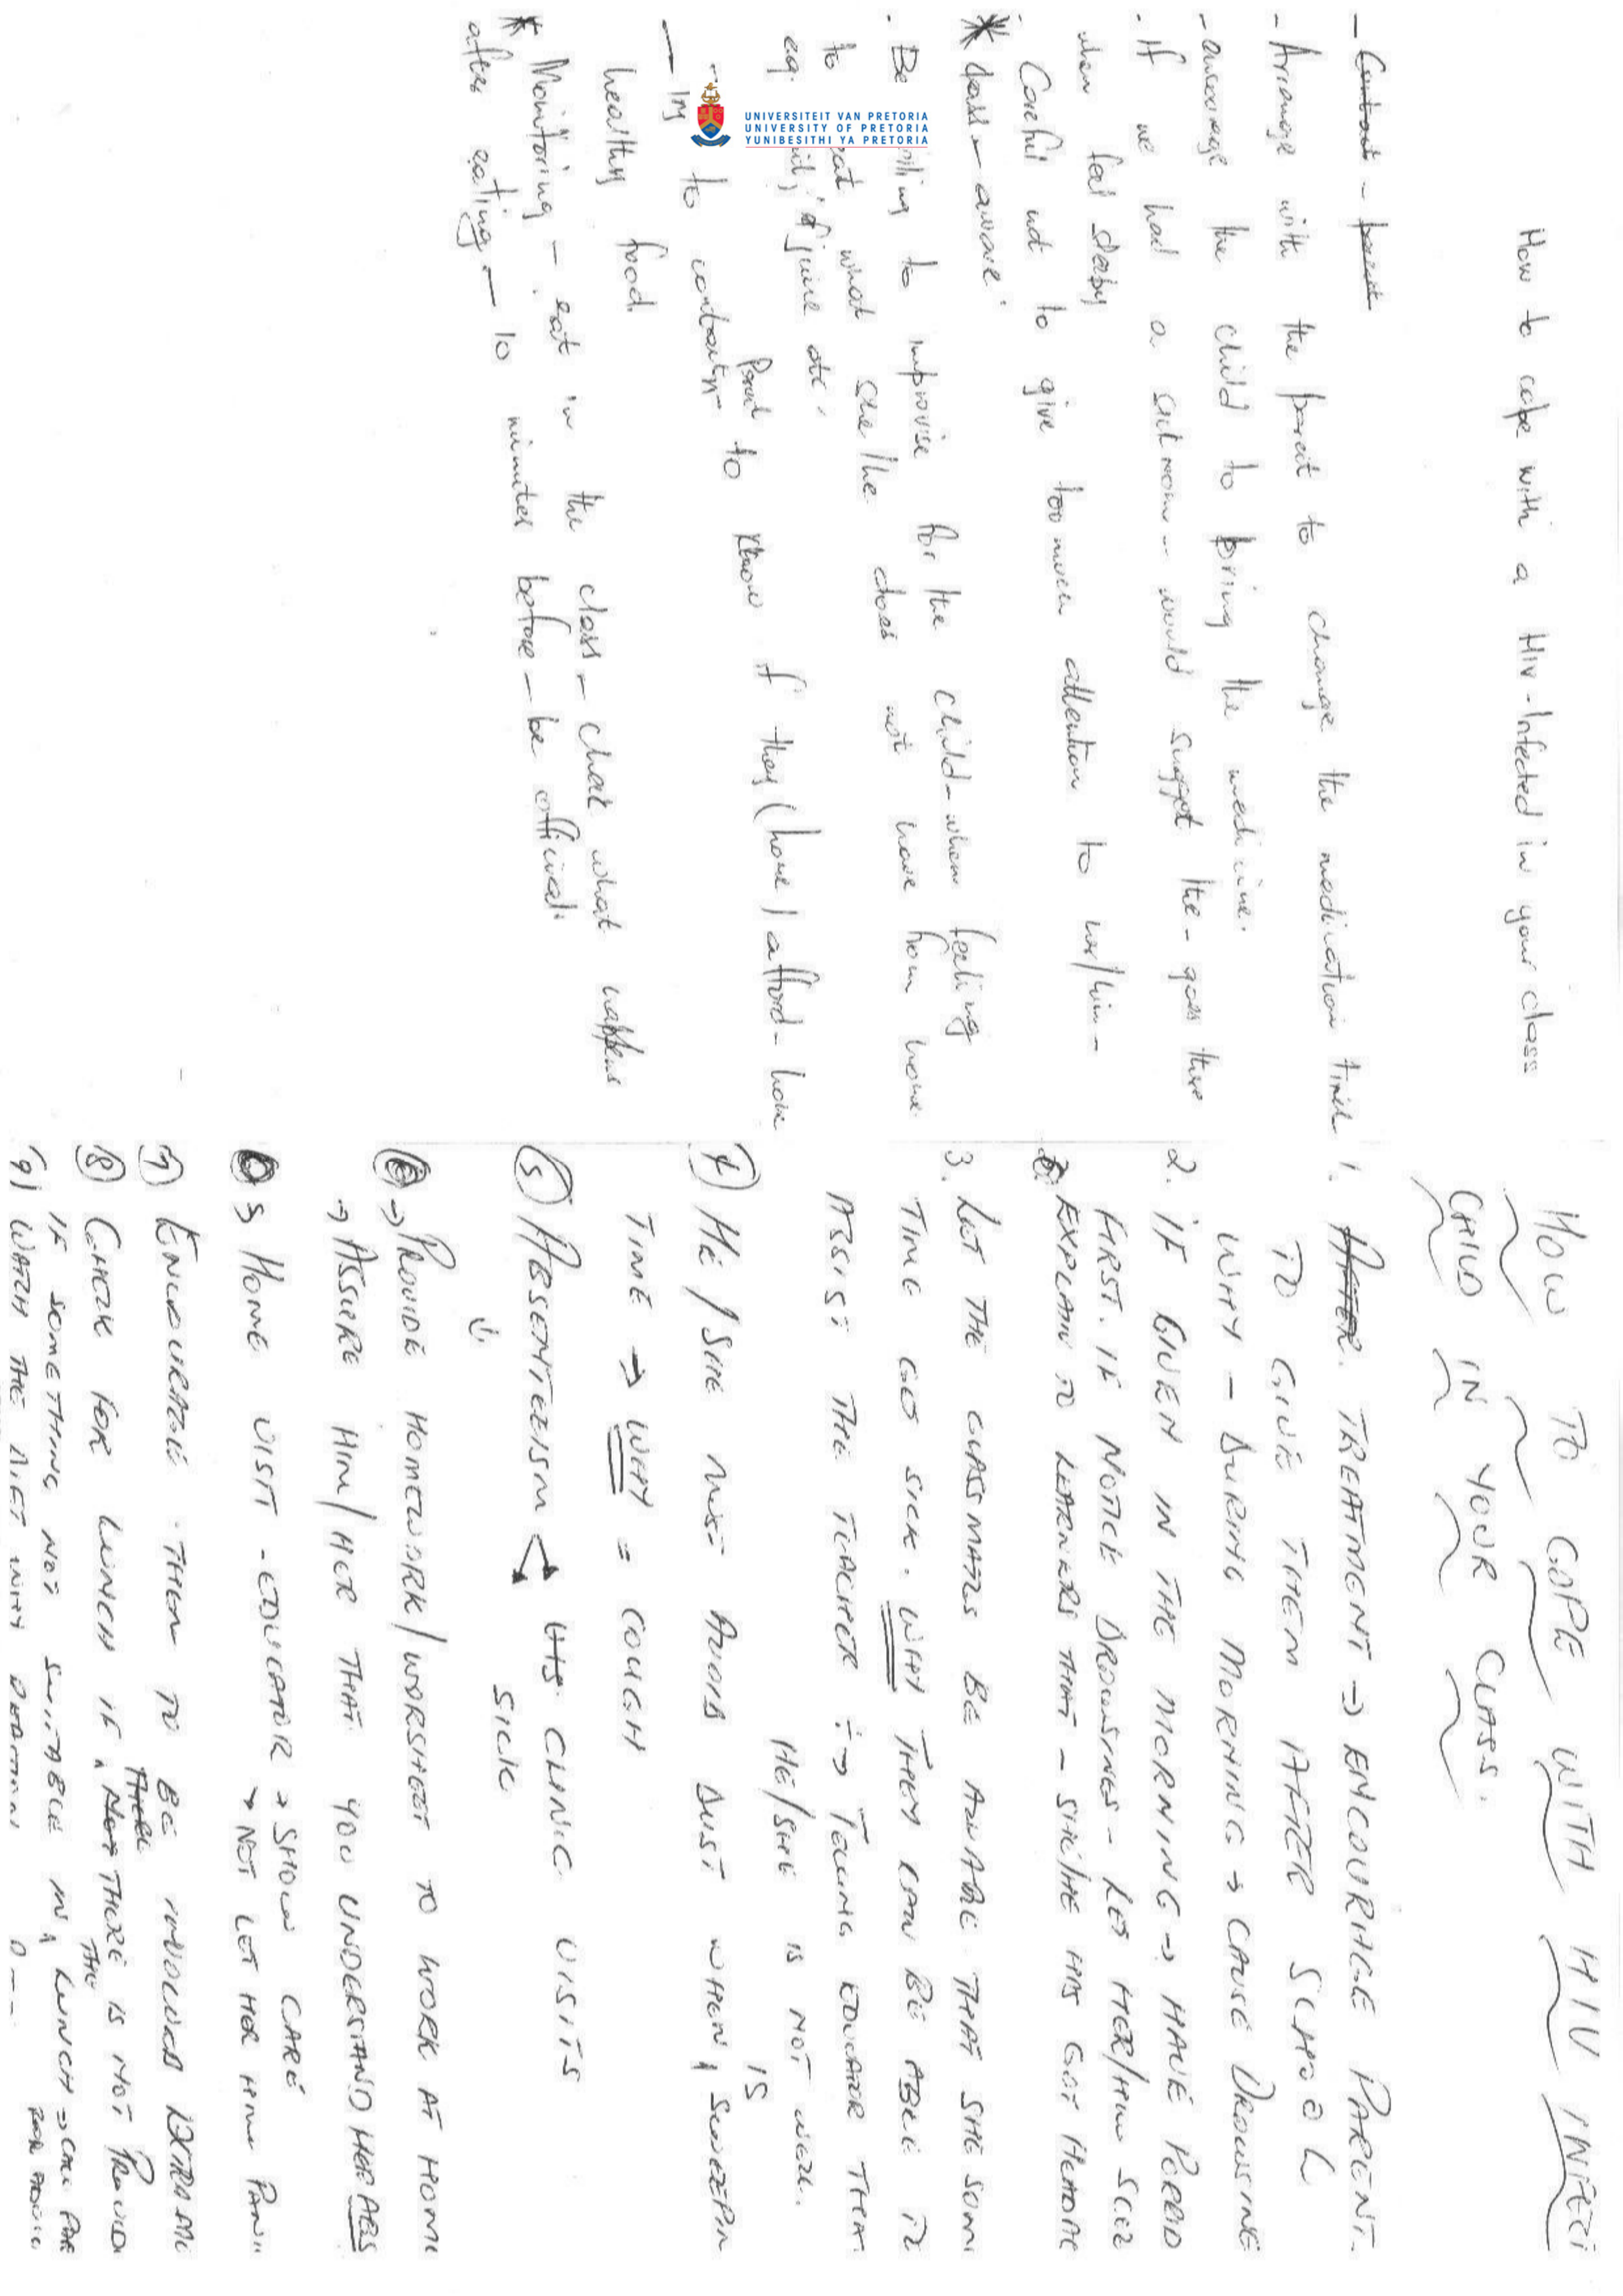 UNIVERSITEIT VAN PRETORIA
UNIVERSITY OF PRETORIA
YUNIBESITHI YA PRETORIA
How to cope with a HIV-Infected in your class
- Contract - parent
- Arrange with the parent to change the medication time
- encourage the child to bring the medicine.
- If we had a sickroom - would suggest the - goes there
when feel sleepy
- Careful not to give too much attention to her/him -
* class - aware
- Be willing to improvise for the child - when feeling
to eat what she/he does not have from home
e.g. juice etc.
Parent to know if they (home) afford - home
to
healthy food.
* Monitoring - eat in the class - check what happens
after eating - 10 minutes before - be official.
HOW TO COPE WITH HIV INFECT
CHILD IN YOUR CLASS.
1. AFTER. TREATMENT → ENCOURAGE PARENT.
TO GIVE THEM AFTER SCHOOL
WHY - DURING MORNING → CAUSE DROWSINE
2. IF GIVEN IN THE MORNING → HAVE PORRID
FIRST. IF NOTICE DROWSINES - LET HER/HIM SLEE
EXPLAIN TO LEARNERS THAT - SHE/HE HAS GOT HEADAC
3. LET THE CLASSMATES BE AWARE THAT SHE SOME
TIME GO SICK. WHY THEY CAN BE ABLE TO
ASSIST THE TEACHER → TELLING EDUCATR THAT
HE/SHE IS NOT WELL.
4) HE/SHE MUST AVOID DUST WHEN IS SWEEPIN
TIME → WHY = COUGH
5) ABSENTEEISM CLINIC VISITS
SICK
6 → PROVIDE HOMEWORK/WORKSHEET TO WORK AT HOME
→ ASSURE HIM/HER THAT YOU UNDERSTAND HER ABS
→ HOME VISIT - EDUCATOR → SHOW CARE
→ NOT LET HER HIM PANI
7) ENCOURAGE THEM TO BE INVOLVED EXTRA MU
8) CHECK FOR LUNCH IF THERE IS NOT PROVID
IF SOMETHING NOT SUITABLE IN THE LUNCH → CALL PAR
9) WATCH THE DIET WHY